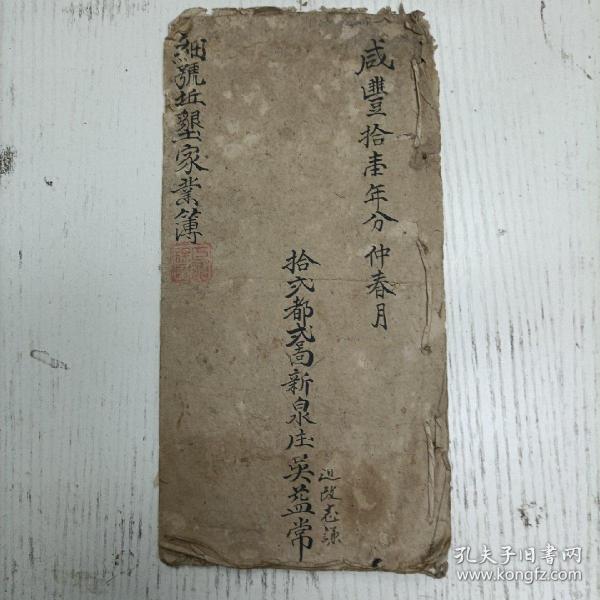 咸豐拾壹年分仲春月
拾弍都弍啚新泉庄吳益常
細號坵墾家業簿
孔夫子旧书网
www.kongfz.com